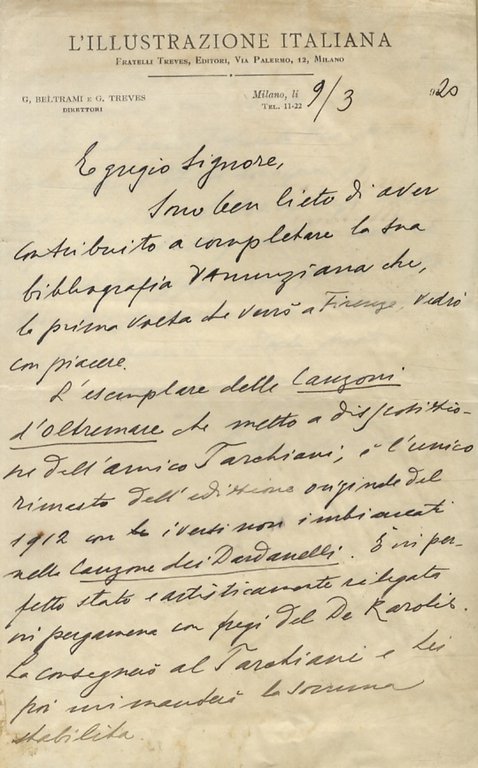 L'ILLUSTRAZIONE ITALIANA
FRATELLI TREVES, EDITORI, VIA PALERMO, 12, MILANO
G. BELTRAMI E G. TREVES
DIRETTORI
Milano, li 9/3 1920
TEL. 11-22
Egregio Signore,
Sono ben lieto di aver
contribuito a completare la sua
bibliografia d'Annunziana che,
la prima volta che verrò a Firenze, vedrò
con piacere.
L'esemplare delle Canzoni
d'oltremare che metto a disposizio-
ne dell'amico Tarchiani, è l'unico
rimasto dell'edizione originale del
1912 con i versi non imbiancati
nella Canzone dei Dardanelli. È in per-
fetto stato e artisticamente rilegato
in pergamena con fregi del De Karolis.
La consegnerò al Tarchiani e Lei
poi mi manderà la somma
stabilita.